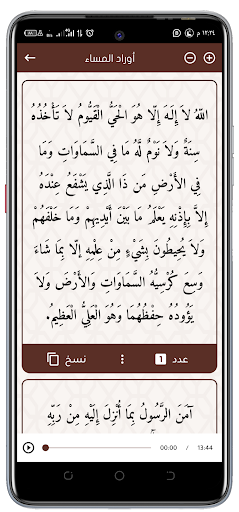 ١٢:٢٤ م
أوراد المساء
اللهُ لاَ إِلَـهَ إِلَّا هُوَ الْحَيُّ الْقَيُّومُ لاَ تَأْخُذُهُ
سِنَةٌ وَلاَ نَوْمٌ لَّهُ مَا فِي السَّمَاوَاتِ وَمَا
فِي الأَرْضِ مَن ذَا الَّذِي يَشْفَعُ عِنْدَهُ
إِلاَّ بِإِذْنِهِ يَعْلَمُ مَا بَيْنَ أَيْدِيهِمْ وَمَا خَلْفَهُمْ
وَلاَ يُحِيطُونَ بِشَيْءٍ مِّنْ عِلْمِهِ إِلَّا بِمَا شَاءَ
وَسِعَ كُرْسِيُّهُ السَّمَاوَاتِ وَالأَرْضَ وَلاَ
يَؤُودُهُ حِفْظُهُمَا وَهُوَ الْعَلِيُّ الْعَظِيمُ.
عدد 1
نسخ
آمَنَ الرَّسُولُ بِمَا أُنْزِلَ إِلَيْهِ مِنْ رَبِّهِ
00:00 / 13:44